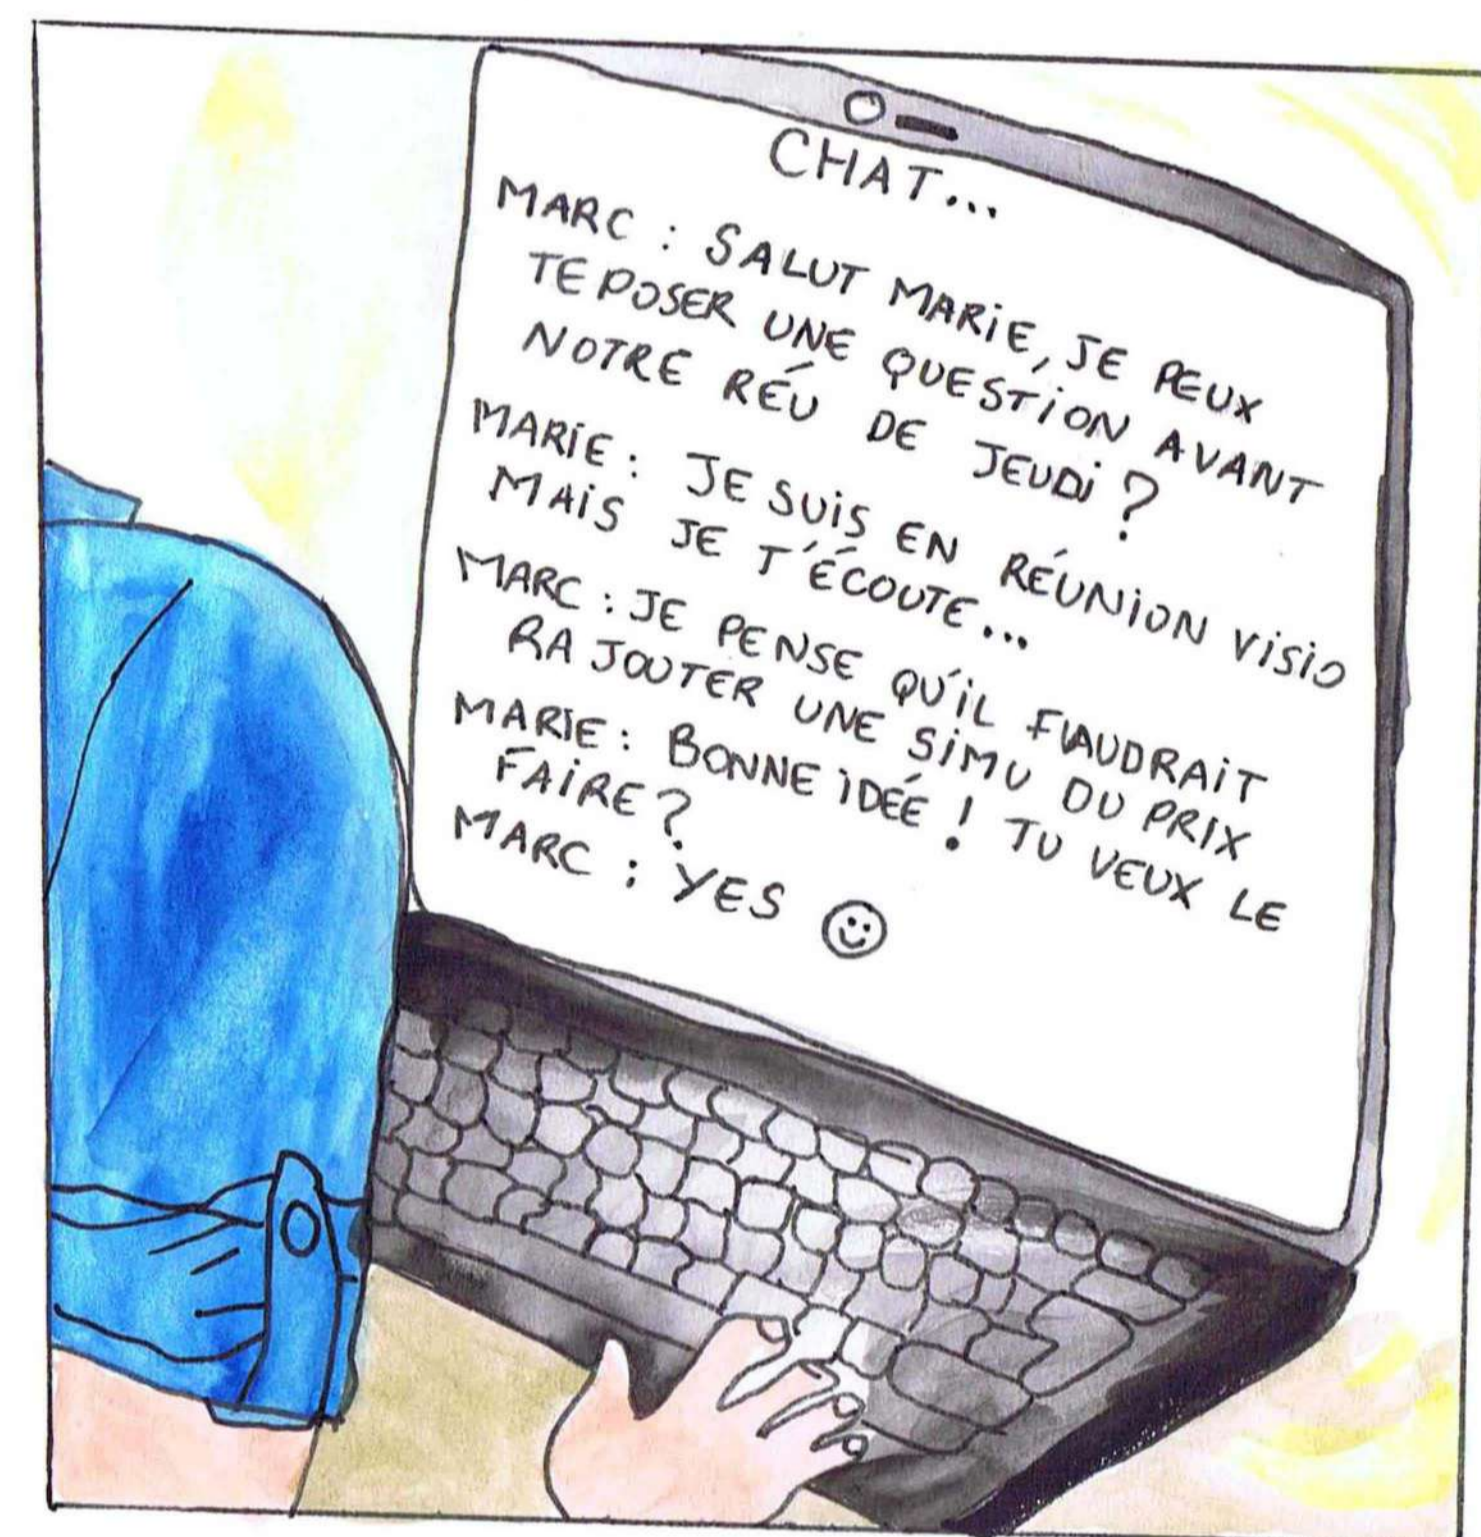 CHAT...
MARC : SALUT MARIE, JE PEUX
TE POSER UNE QUESTION AVANT
NOTRE RÉU DE JEUDI ?
MARIE : JE SUIS EN RÉUNION VISIO
MAIS JE T'ÉCOUTE...
MARC : JE PENSE QU'IL FAUDRAIT
RAJOUTER UNE SIMU DU PRIX
MARIE : BONNE IDÉE ! TU VEUX LE
FAIRE ?
MARC : YES ☺